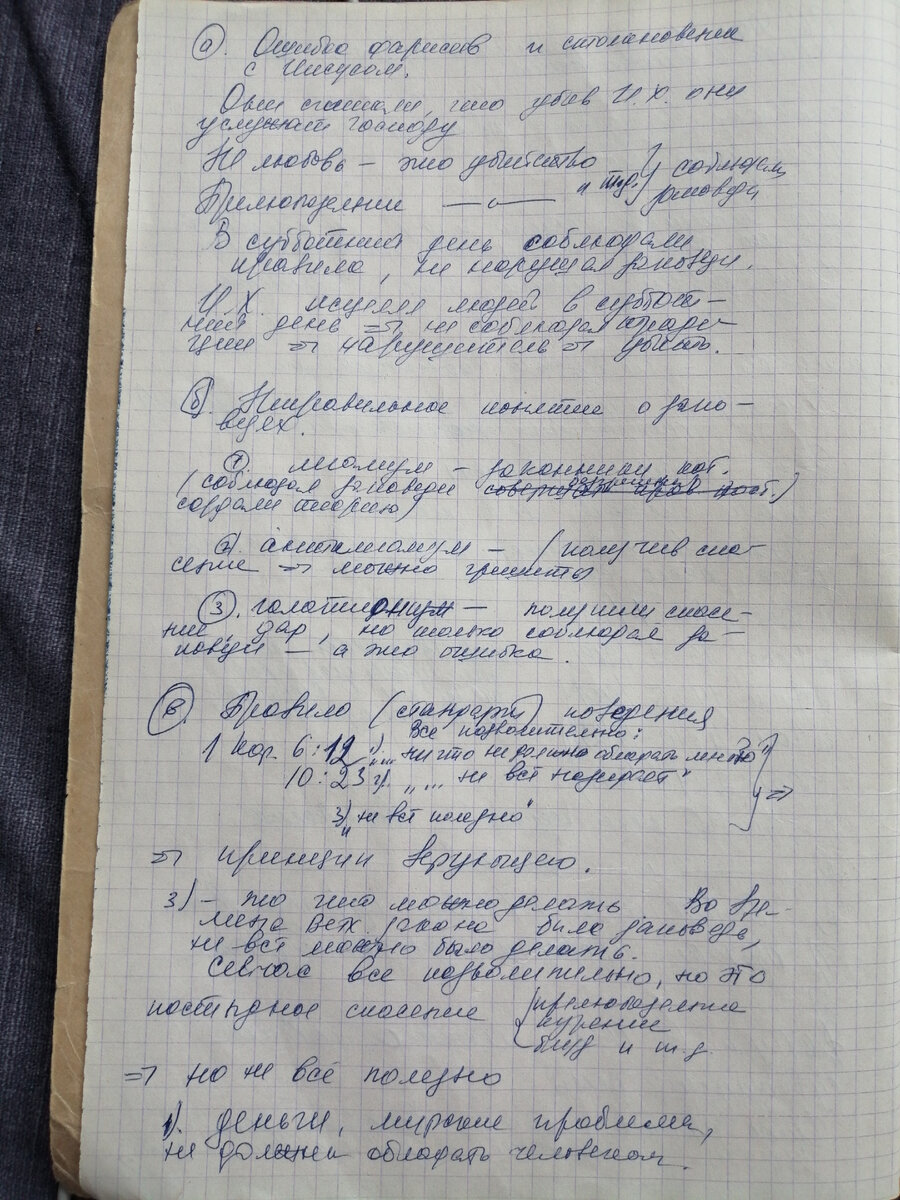 а). Ошибка фарисеев и столкновение
с Иисусом.
Они считали, что убив И.Х. они
услужат Господу
Не любовь – это убийство
и т.д. } соблюдали
Прелюбодеяние —"— заповеди
В субботний день соблюдали
правила, не нарушая заповеди.
И.Х. исцелял людей в суббот-
ний день => не соблюдал тради-
ции => нарушитель => убить.
б). Неправильное понятие о запо-
ведех.
1) легализм – законники, кот.
(соблюдая заповеди
создали теорию)
2) антилегализм – (получив спа-
сение => можно грешить)
3). галатианизм – получили спасе-
ние, дар, но только соблюдая за-
поведи – а это ошибка.
в). Правило (стандарт) поведения
Всё позволительно:
1 Кор. 6:12 1) "... ничто не должно обладать мною"
10:23 2). "... не всё назидает"
3) "не всё полезно"
=> принцип верующего.
3) – это что можно делать. Во вре-
мена Ветх. закона было заповедь,
не всё можно было делать.
Сейчас все позволительно, но это
постыдное спасение { прелюбодеяние
курение
блуд и т.д.
=> но не всё полезно
1). деньги, мирские проблемы,
не должны обладать человеком.